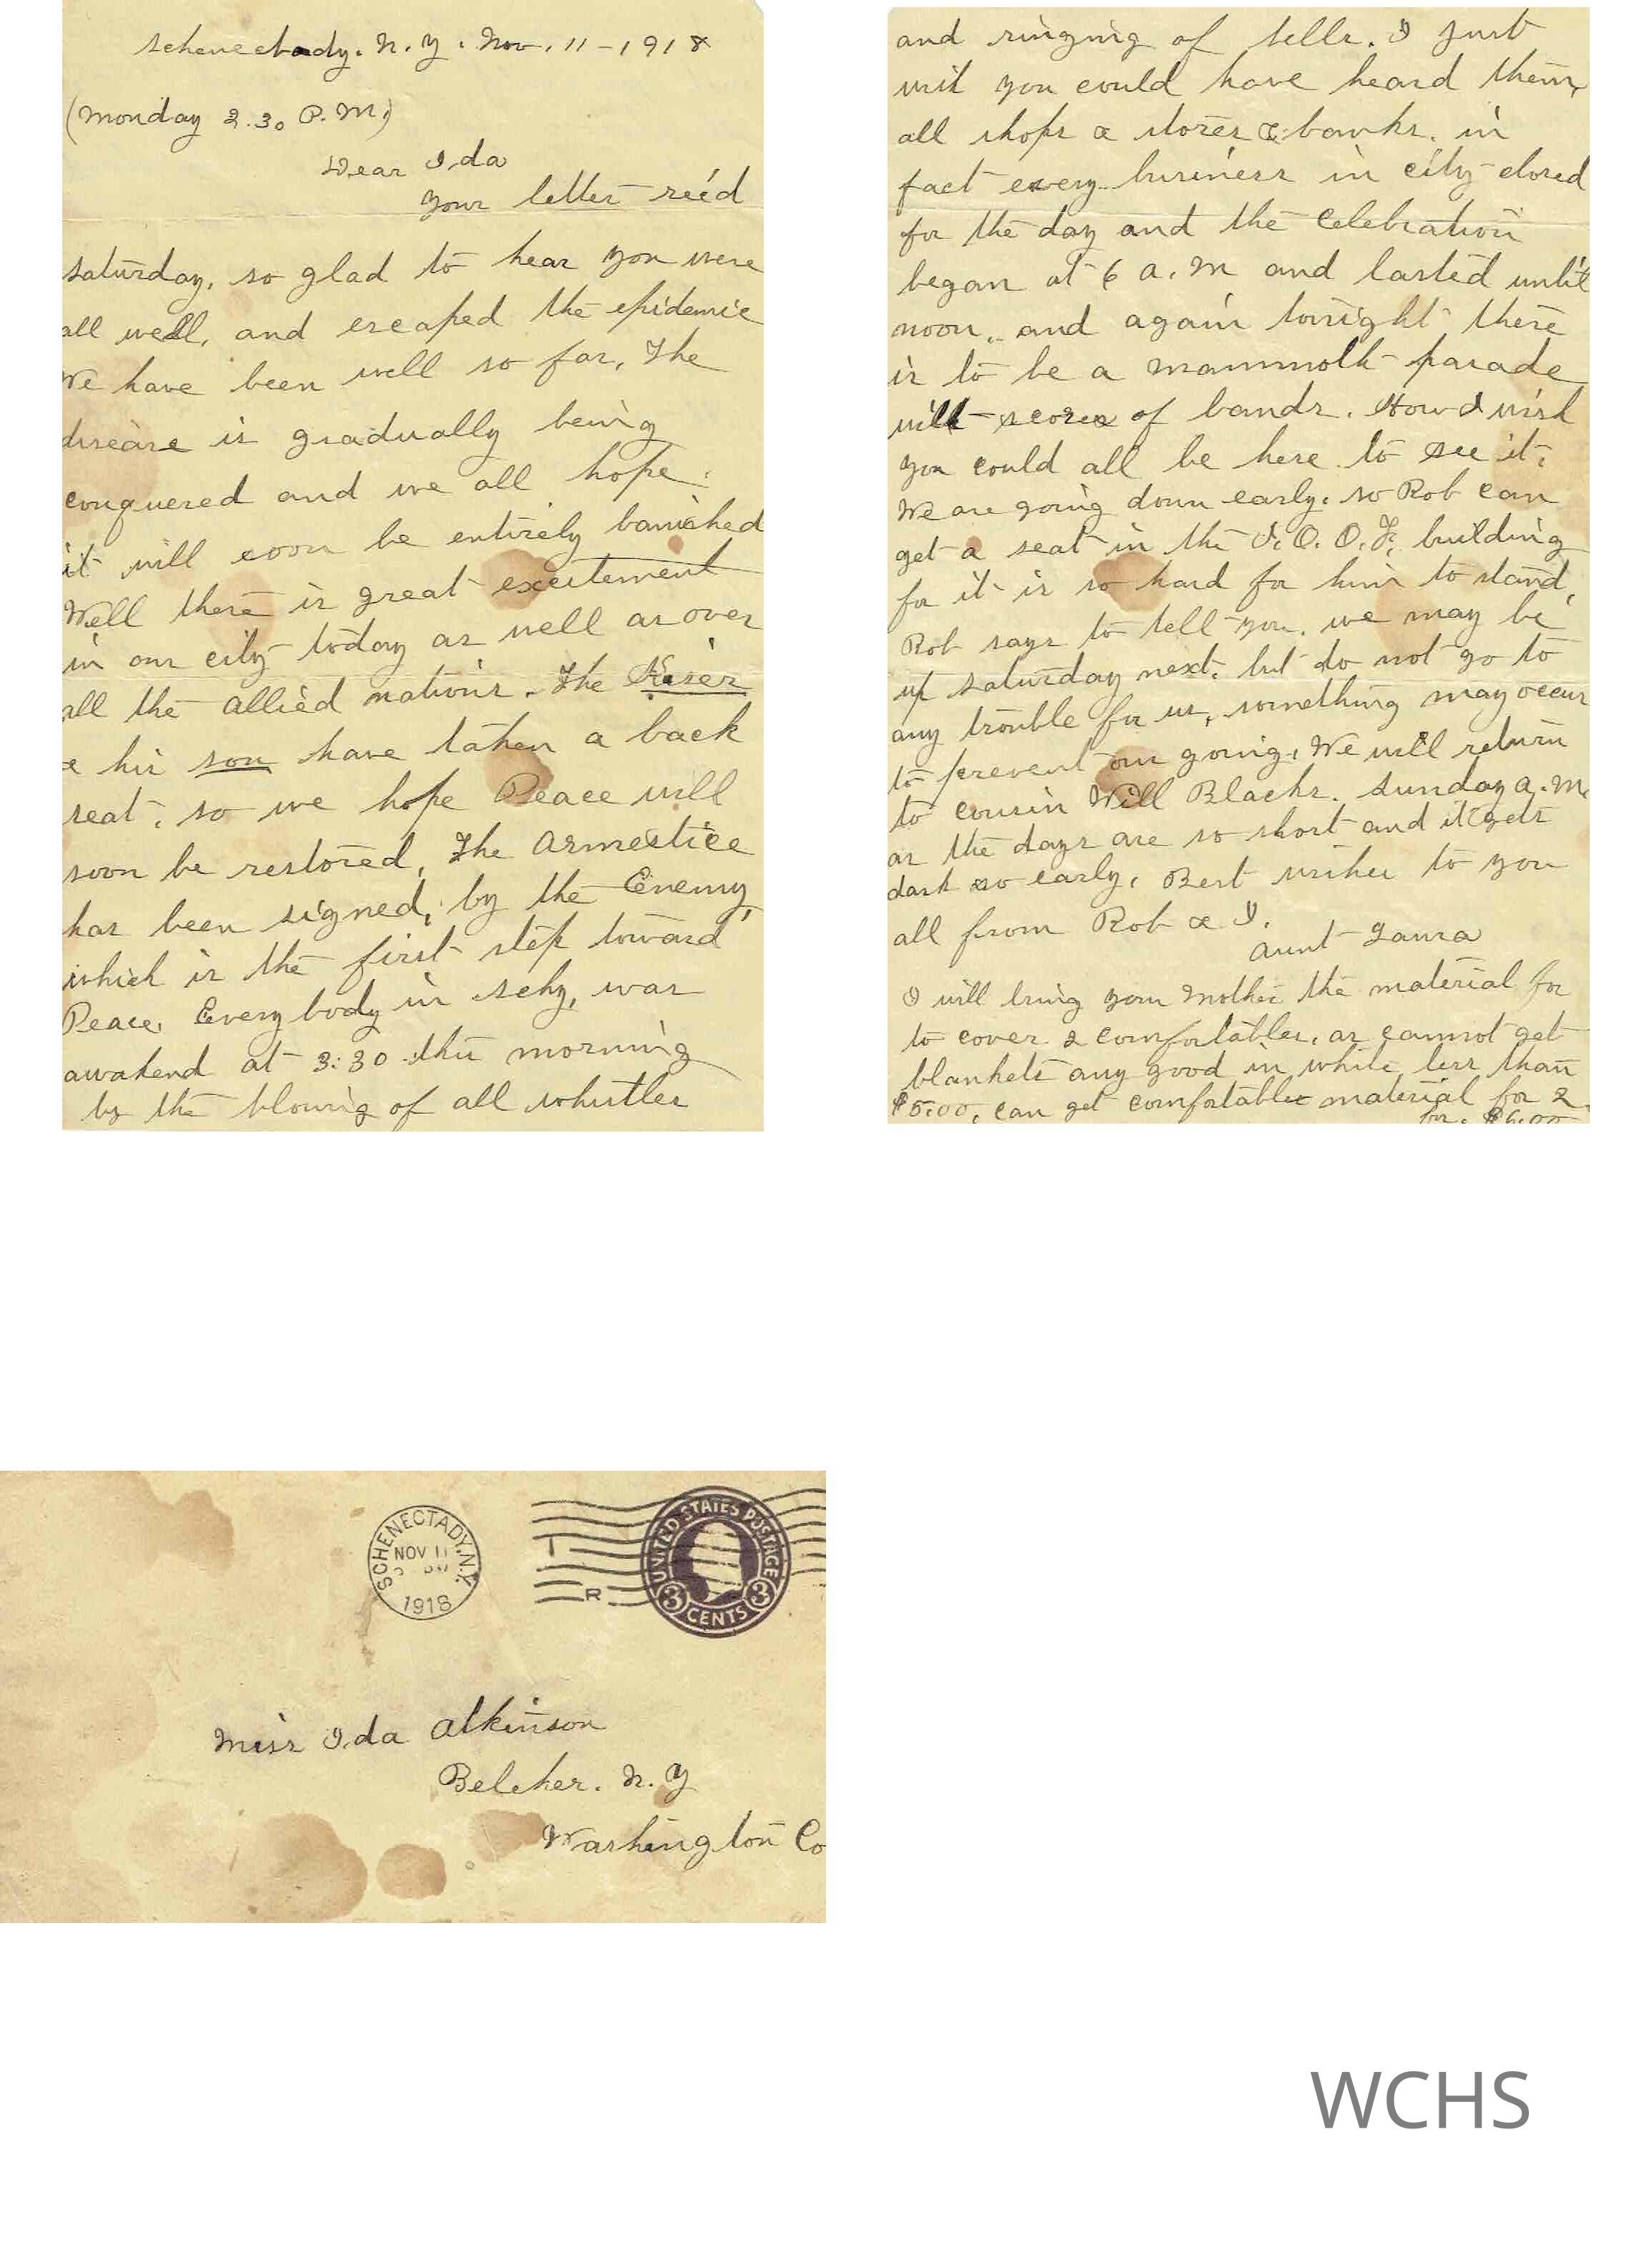 Schenectady. N. Y. Nov. 11-1918
(Monday 2.30 P.M.)
Dear Ida
Your letter rec'd
Saturday, so glad to hear you were
all well, and escaped the epidemic
We have been well so far, The
disease is gradually being
conquered and we all hope.
it will soon be entirely banished
Well there is great excitement
in our city today as well as over
all the allied nations. The Kaiser
& his son have taken a back
seat, so we hope Peace will
soon be restored, The Armestice
has been signed, by the Enemy,
which is the first step toward
Peace, Everybody in schy, was
awakend at 3:30 this morning
by the blowing of all whistles
and ringing of bells. I just
wish you could have heard them,
all shops & stores & banks. in
fact every business in city closed
for the day and the Celebration
began at 6 a.m and lasted until
noon, and again tonight there
is to be a mammoth parade
with scores of bands. How I wish
you could all be here to see it,
We are going down early, so Rob can
get a seat in the I.O.O.F. building
for it is so hard for him to stand,
Rob says to tell you, we may be
up Saturday next, but do not go to
any trouble for us, something may occur
to prevent our going, We will return
to cousin Will Blacks. Sunday a.m.
as the days are so short and it gets
dark so early, Best wishes to you
all from Rob & I.
Aunt Laura
I will bring your Mother the material for
to cover 2 comfortables, as cannot get
blankets any good in white less than
$5.00, can get comfortable material for 2
for. $6.00
SCHENECTADY, N.Y.
NOV 11
1918
UNITED STATES POSTAGE
3 CENTS 3
R
Miss Ida Atkinson
Belcher. N. Y
Washington Co
WCHS